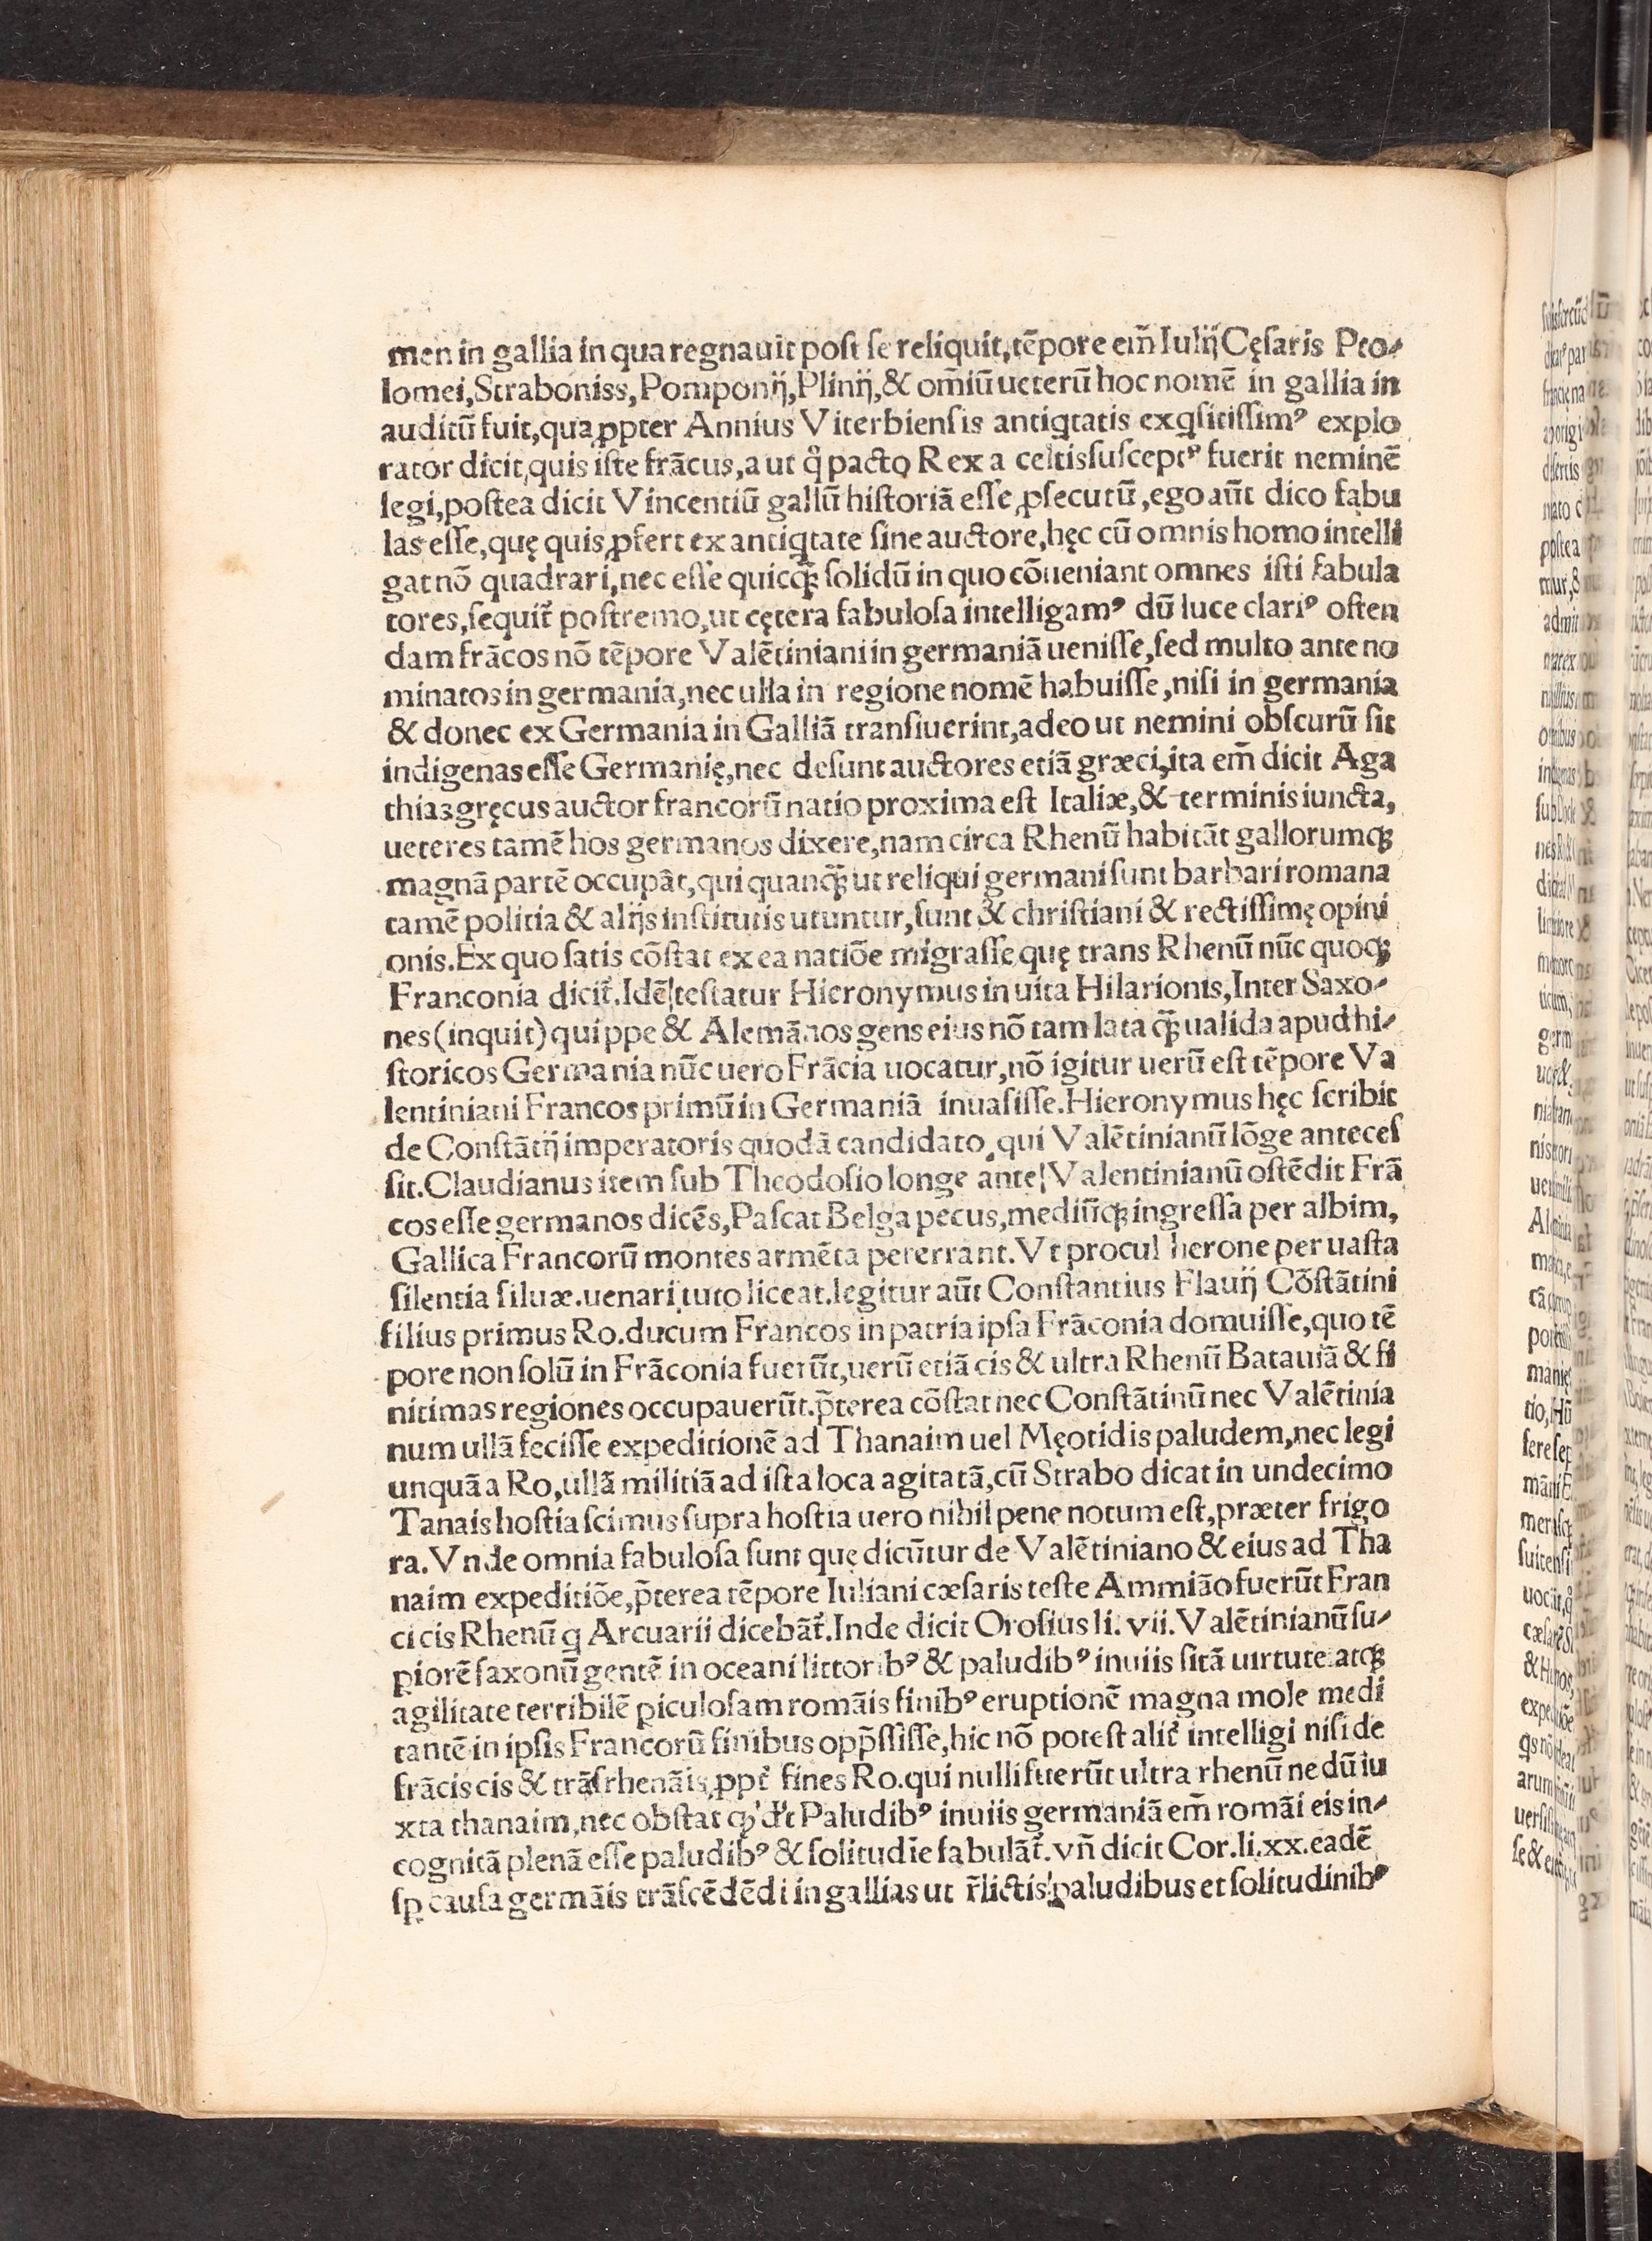 men in gallia in qua regnauit poſt ſe reliquit, tēpore em̄ Iulij Cęſaris Pto⸗
lomei, Straboniss, Pomponij, Plinij, & om̄iū ueterū hoc nomē in gallia in
auditū fuit, qua ꝓpter Annius Viterbienſis antiqtatis exqſitiſſimꝰ explo
rator dicit, quis iſte frācus, aut qͦ pacto Rex a celtis ſuſceptꝰ fuerit neminē
legi, poſtea dicit Vincentiū gallū hiſtoriā eſſe ꝓſecutū, ego aūt dico fabu
las eſſe, quę quis ꝓfert ex antiqtate ſine auctore, hęc cū omnis homo intelli
gat nō quadrari, nec eſſe quicꝗ̄ ſolidū in quo cōueniant omnes iſti fabula
tores, ſequit̃ poſtremo, ut cętera fabuloſa intelligamꝰ dū luce clariꝰ oſten
dam frācos nō tēpore Valētiniani in germaniā ueniſſe, ſed multo ante no
minatos in germania, nec ulla in regione nomē habuiſſe, niſi in germania
& donec ex Germania in Galliā tranſiuerint, adeo ut nemini obſcurū ſit
indigenas eſſe Germanię, nec deſunt auctores etiā græci, ita em̄ dicit Aga
thias gręcus auctor francorū natio proxima eſt Italiæ, & terminis iuncta,
ueteres tamē hos germanos dixere, nam circa Rhenū habitāt gallorumqꝫ
magnā partē occupāt, qui quanꝗ̄ ut reliqui germani ſunt barbari romana
tamē politia & alijs inſtitutis utuntur, ſunt & chriſtiani & rectiſſimę opini
onis. Ex quo ſatis cōſtat ex ea natiōe migraſſe, quę trans Rhenū nūc quoqꝫ
Franconia dicit̃. Idē teſtatur Hieronymus in uita Hilarionis, Inter Saxo⸗
nes (inquit) quippe & Alemānos gens eius nō tam lata ꝗ̄ ualida apud hi⸗
ſtoricos Germania nūc uero Frācia uocatur, nō igitur uerū eſt tēpore Va
lentiniani Francos primū in Germaniā inuaſiſſe. Hieronymus hęc ſcribit
de Conſtātij imperatoris quodā candidato, qui Valētinianū lōge anteceſ
ſit. Claudianus item ſub Theodoſio longe ante Valentinianū oſtēdit Frā
cos eſſe germanos dicēs, Paſcat Belga pecus, mediūqꝫ ingreſſa per albim,
Gallica Francorū montes armēta pererrant. Vt procul herone per uaſta
ſilentia ſiluæ. uenari tuto liceat. legitur aūt Conſtantius Flauij Cōſtātini
filius primus Ro. ducum Francos in patria ipſa Frāconia domuiſſe, quo tē
pore non ſolū in Frāconia fuerūt, uerū etiā cis & ultra Rhenū Batauiā & fi
nitimas regiones occupauerūt. p̄terea cōſtat nec Conſtātinū nec Valētinia
num ullā feciſſe expeditionē ad Thanaim uel Męotidis paludem, nec legi
unquā a Ro, ullā militiā ad iſta loca agitatā, cū Strabo dicat in undecimo
Tanais hoſtia ſcimus ſupra hoſtia uero nihil pene notum eſt, præter frigo
ra. Vnde omnia fabuloſa ſunt quę dicūtur de Valētiniano & eius ad Tha
naim expeditiōe, p̄terea tēpore Iuliani cæſaris teſte Ammiāo fuerūt Fran
ci cis Rhenū q Arcuarii dicebāt̃. Inde dicit Oroſius li. vii. Valētinianū ſu⸗
piorē ſaxonū gentē in oceani littoribꝰ & paludibꝰ inuiis ſitā uirtute atqꝫ
agilitate terribilē ꝑiculoſam romāis finibꝰ eruptionē magna mole medi
tantē in ipſis Francorū finibus opp̄ſſiſſe, hic nō poteſt alit̃ intelligi niſi de
frāciscis & trāſrhenāis ꝓpt̃ fines Ro. qui nulli fuerūt ultra rhenū nedū iu
xta thanaim, nec obſtat ꝙ dr̃t Paludibꝰ inuiis germaniā em̄ romāi eis in⸗
cognitā plenā eſſe paludibꝰ & ſolitudīe fabulāt̃. vñ dicit Cor. li. xx. eadē
ſꝑ cauſa germāis trāſcēdēdi in gallias ut r̄lictis paludibus et ſolitudinibꝰ